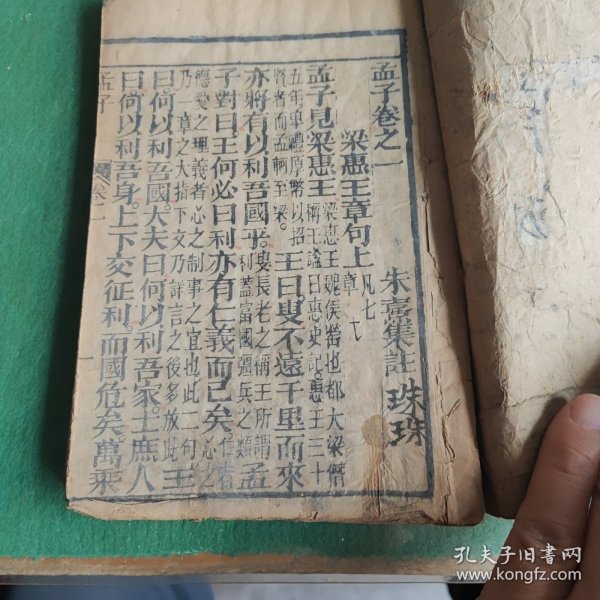 孟子卷之一
朱熹集註
珠珠
梁惠王章句上
凡七章
孟子見梁惠王
梁惠王魏侯罃也都大梁僭
稱王謚曰惠史記惠王三十
五年卑禮厚幣以招
賢者而孟軻至梁
王曰叟不遠千里而來
亦將有以利吾國乎
叟長老之稱王所謂
利蓋富國彊兵之類
孟
子對曰王何必曰利亦有仁義而已矣
仁者
心之
德愛之理義者心之制事之宜也此二句
乃一章之大指下文乃詳言之後多放此
王
曰何以利吾國大夫曰何以利吾家士庶人
曰何以利吾身上下交征利而國危矣萬乘
孟子
卷一
一
孔夫子旧书网
www.kongfz.com